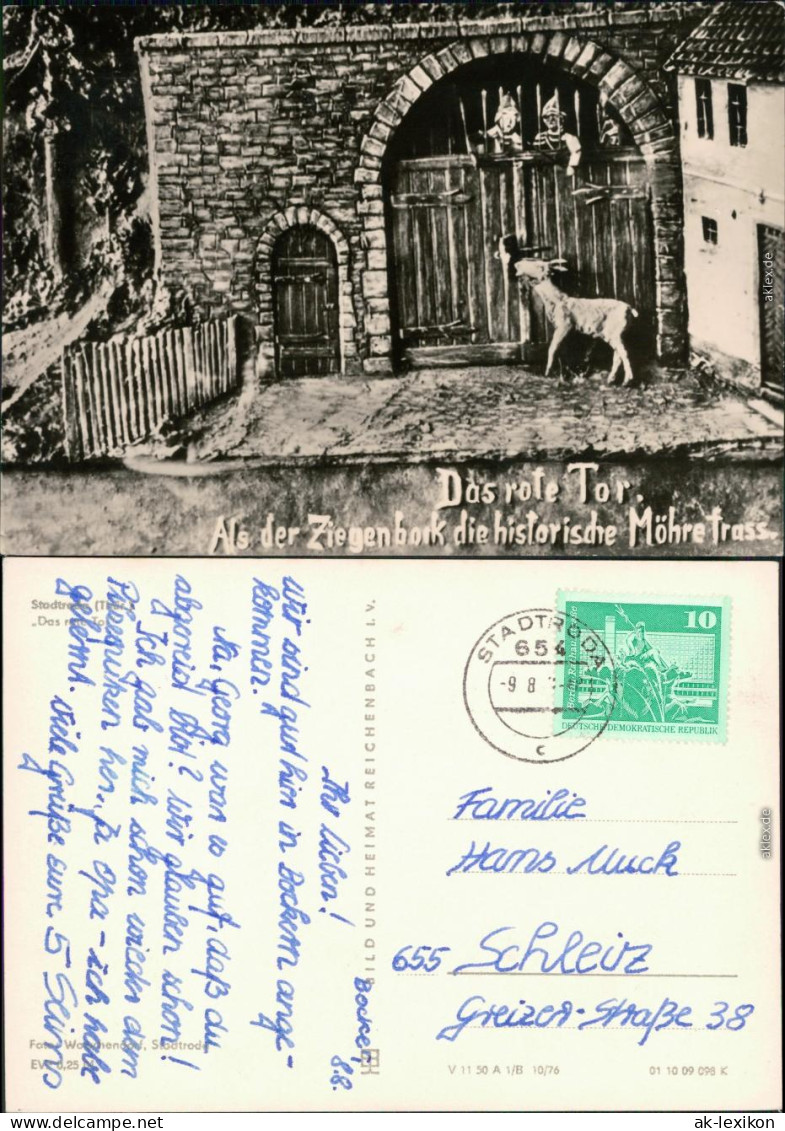 Das rote Tor.
Als der Ziegenbock die historische Möhre frass.
aklex.de
Stadtroda (Thür.)
„Das rote Tor“
Bocken
8.8.
Ihr lieben!
Wir sind gut hin in Bockern ange-
kommen.
Na, Georg war es gut, daß du
abgereist bist? Wir glauben schon!
Ich gab mich schon wieder dem
her. Ja Opa - ich habe
gelernt. Viele Grüße eure 5
Foto: Stadtroda
EVP 0,25 M
BILD UND HEIMAT REICHENBACH I. V.
STADTRODA
654
-9.8.
c
10
DEUTSCHE DEMOKRATISCHE REPUBLIK
Familie
Hans Muck
655 Schleiz
Greizer-Straße 38
V 11 50 A 1/B 10/76
01 10 09 098 K
aklex.de
www.ansichtskarten-lexikon.de
ak-lexikon